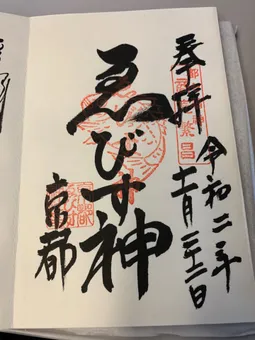 奉拝
令和二年
十一月二十二日
ゑびす神
京都